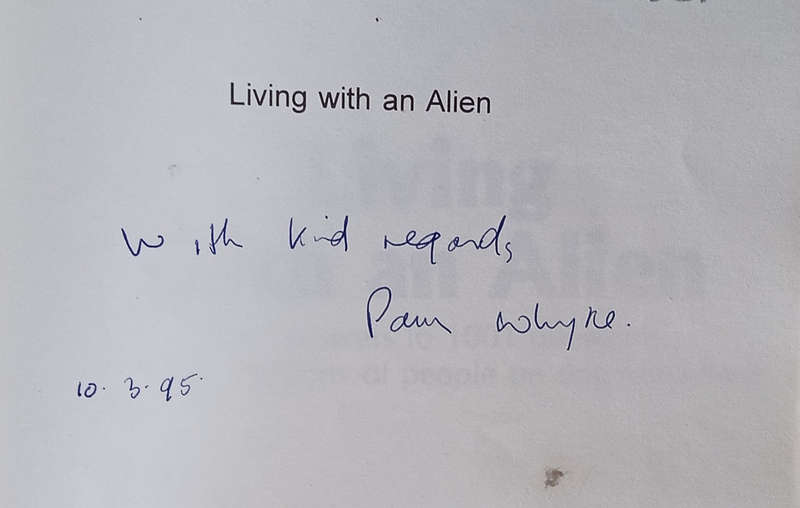 Living with an Alien
With kind regards
Pam Whyte.
10. 3. 95.